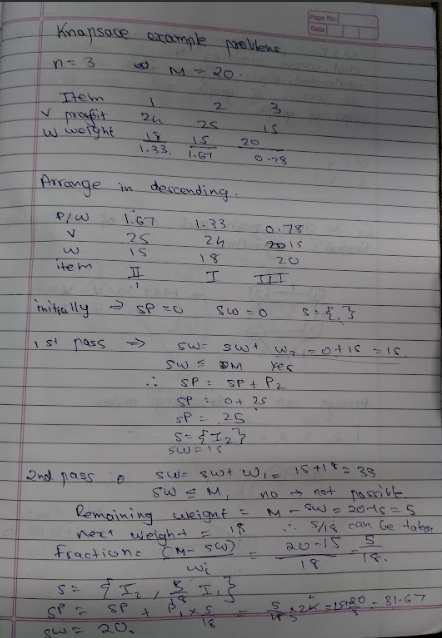 Page No.
Date
Knapsace example problems
n = 3 M = 20.
Item 1 2 3
v profit 24 25 15
w weight 18 15 20
1.33 1.67 0.78
Arrange in descending.
P/W 1.67 1.33 0.78
V 25 24 15
W 15 18 20
item II I III
initially ⇒ SP=0 SW=0 S={ }
1st pass ⇒ SW= SW+ W2 = 0+15 = 15
SW ≤ M Yes
∴ SP = SP + P2
SP = 0+ 25
SP = 25
S= {I2}
SW=15
2nd pass SW= SW+ W1 = 15+18 = 33
SW ≤ M, no → not possible.
Remaining weight = M - SW = 20-15 = 5
next weight = 18 ∴ 5/18 can be taken
fraction = (M- SW) / Wi = 20-15 / 18 = 5 / 18.
S = { I2, 5/18 I1}
SP = SP + P1 × 5/18 = 31.67
SW = 20.